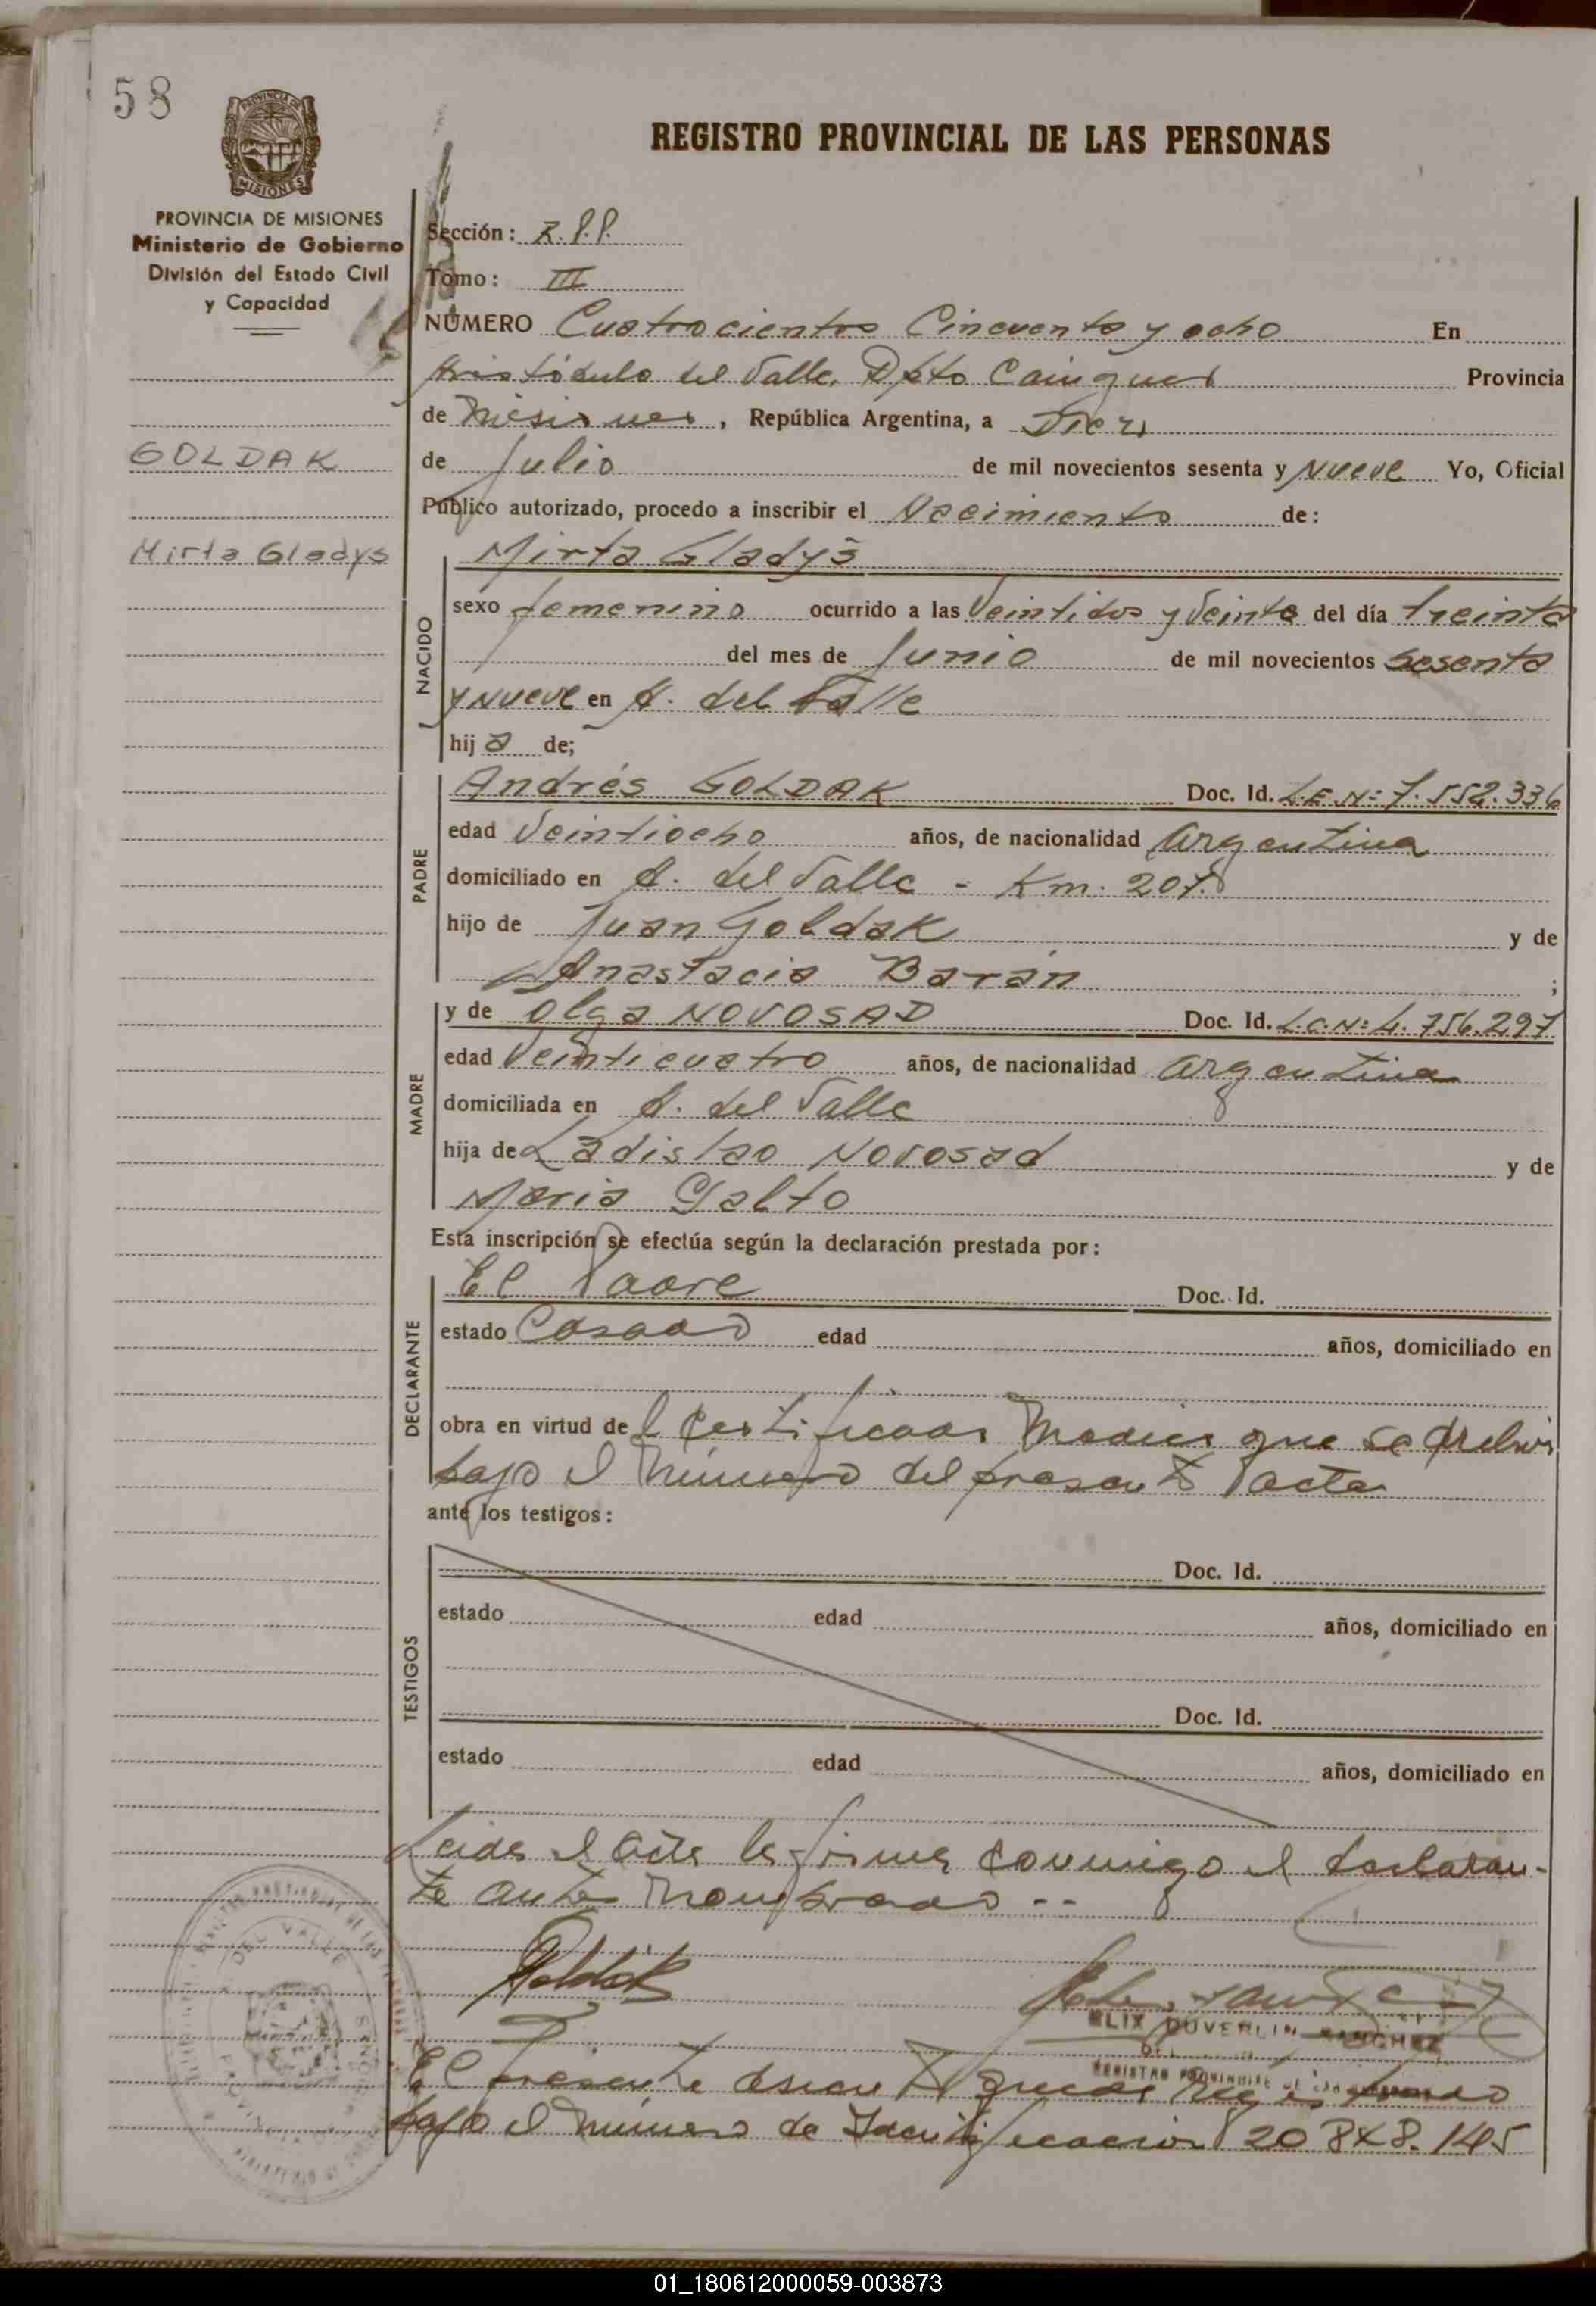 58
PROVINCIA DE MISIONES
PROVINCIA DE MISIONES
Ministerio de Gobierno
División del Estado Civil
y Capacidad
GOLDAK
Mirta Gladys
REGISTRO PROVINCIAL DE LAS PERSONAS
Sección: R.P.P.
Tomo: III
NÚMERO Cuatrocientos Cincuenta y ocho En
Aristóbulo del Valle, Dpto Cainguas Provincia
de Misiones, República Argentina, a Diez
de Julio de mil novecientos sesenta y nueve Yo, Oficial
Público autorizado, procedo a inscribir el Nacimiento de:
NACIDO
Mirta Gladys
sexo femenino ocurrido a las Veintidos y Veinte del día treinta
del mes de Junio de mil novecientos sesenta
y nueve en A. del Valle
hija de;
PADRE
Andrés GOLDAK Doc. Id. L.E.Nº 7.552.336
edad Veintiocho años, de nacionalidad Argentina
domiciliado en A. del Valle - Km. 207
hijo de Juan Goldak y de
Anastacia Barán ;
MADRE
y de Olga NOVOSAD Doc. Id. L.C.Nº 4.756.297
edad Veinticuatro años, de nacionalidad Argentina
domiciliada en A. del Valle
hija de Ladislao Novosad y de
Maria Galto
Esta inscripción se efectúa según la declaración prestada por:
DECLARANTE
El Padre Doc. Id.
estado Casado edad años, domiciliado en
obra en virtud del Certificado Medico que se archiva
bajo el Número del presente acta
ante los testigos:
TESTIGOS
Doc. Id.
estado edad años, domiciliado en
Doc. Id.
estado edad años, domiciliado en
Leida el acta la firma conmigo el declaran-
te antes nombrado --
Goldak
SANCHEZ
El presente queda Registrado
bajo el Número de Identificacion 20.848.145
01_180612000059-003873